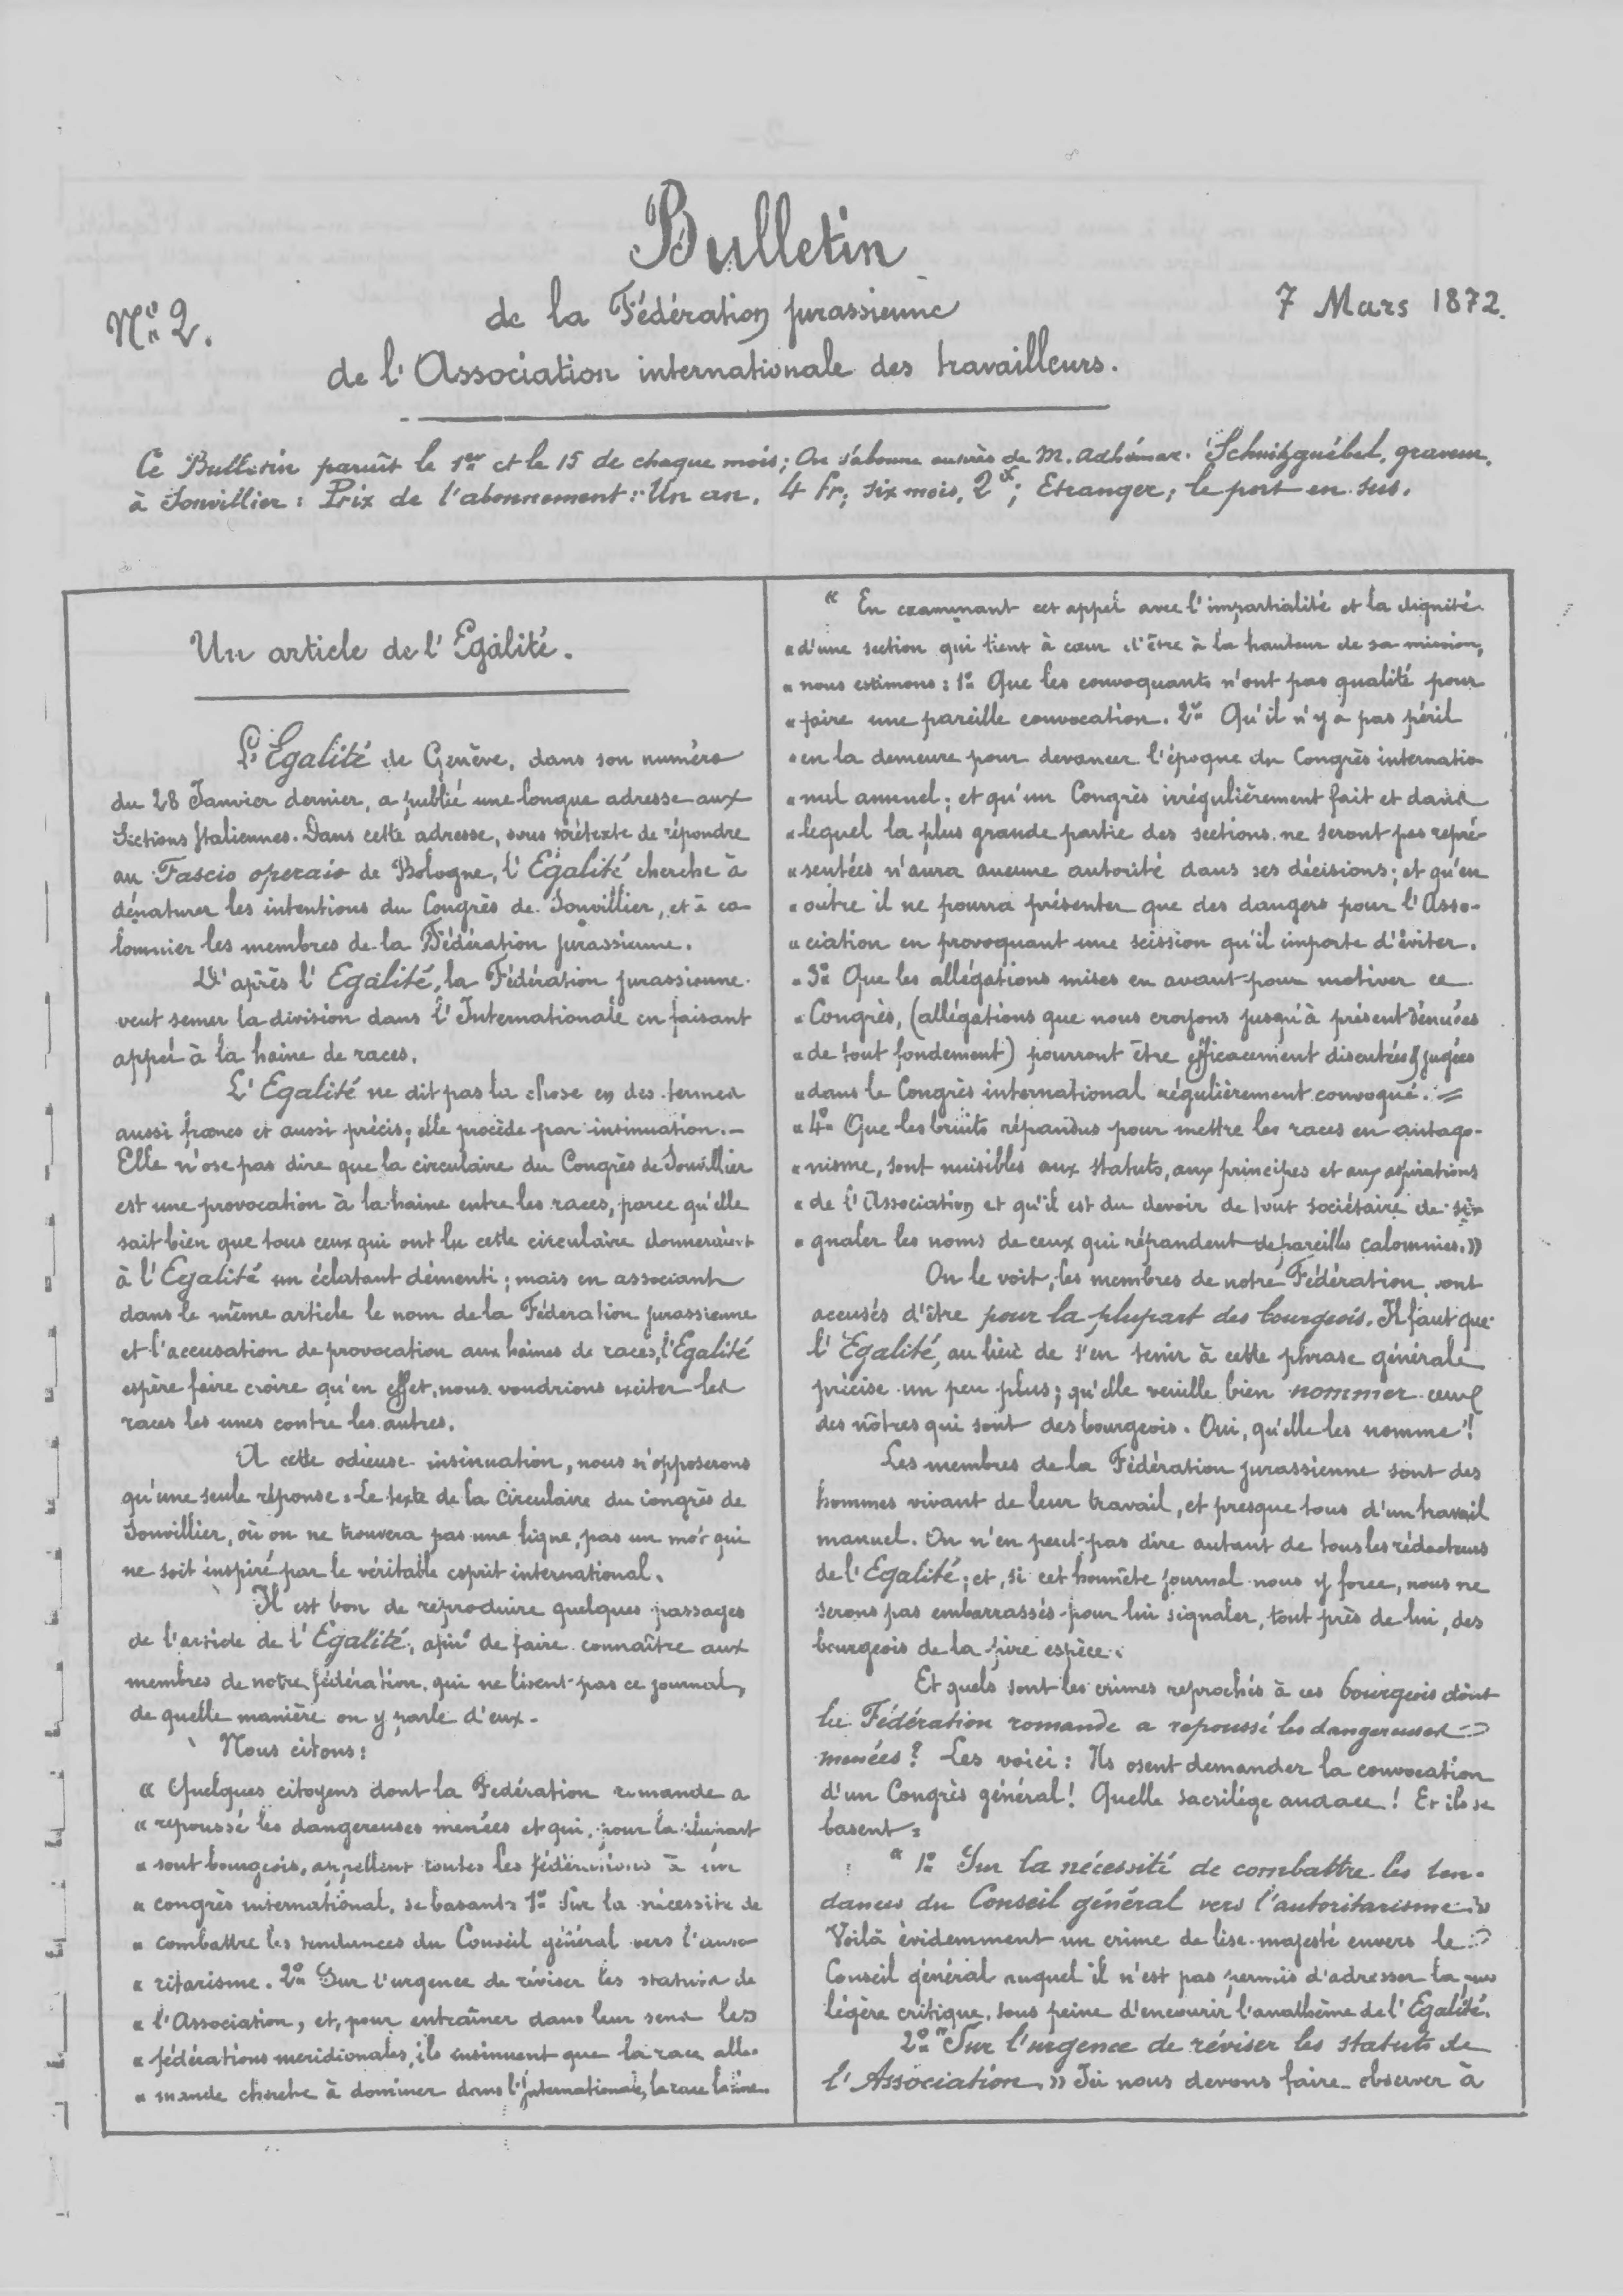 Bulletin
Nº 2.
de la Fédération jurassienne
7 Mars 1872.
de l'Association internationale des travailleurs.
Ce Bulletin paraît le 1er et le 15 de chaque mois; On s'abonne auprès de M. Adhémar Schwitzguébel, graveur,
à Sonvillier: Prix de l'abonnement: Un an, 4 fr; six mois, 2 fr; Etranger; le port en sus.
Un article de l'Egalité.
L'Egalité de Genève, dans son numéro
du 28 Janvier dernier, a publié une longue adresse aux
Sections Italiennes. Dans cette adresse, sous prétexte de répondre
au Fascio operaio de Bologne, l'Egalité cherche à
dénaturer les intentions du Congrès de Sonvillier, et à ca-
lomnier les membres de la Fédération jurassienne.
D'après l'Egalité, la Fédération jurassienne
veut semer la division dans l'Internationale en faisant
appel à la haine de races.
L'Egalité ne dit pas la chose en des termes
aussi francs et aussi précis; elle procède par insinuation. -
Elle n'ose pas dire que la circulaire du Congrès de Sonvillier
est une provocation à la haine entre les races, parce qu'elle
sait bien que tous ceux qui ont lu cette circulaire donneraient
à l'Egalité un éclatant démenti; mais en associant
dans le même article le nom de la Fédération jurassienne
et l'accusation de provocation aux haines de races, l'Egalité
espère faire croire qu'en effet, nous voudrions exciter les
races les unes contre les autres.
A cette odieuse insinuation, nous n'opposerons
qu'une seule réponse: Le texte de la Circulaire du congrès de
Sonvillier, où on ne trouvera pas une ligne, pas un mot qui
ne soit inspiré par le véritable esprit international.
Il est bon de reproduire quelques passages
de l'article de l'Egalité, afin de faire connaître aux
membres de notre fédération, qui ne lisent pas ce journal,
de quelle manière on y parle d'eux -
Nous citons:
« Quelques citoyens dont la Fédération romande a
« repoussé les dangereuses menées et qui, pour la plupart
« sont bourgeois, appellent toutes les fédérations à un
« congrès international, se basant: 1º Sur la nécessité de
« combattre les tendances du Conseil général vers l'auto-
« ritarisme. 2º Sur l'urgence de réviser les statuts de
« l'Association, et, pour entraîner dans leur sens les
« fédérations méridionales, ils insinuent que la race alle-
« mande cherche à dominer dans l'Internationale, la race latine.
« En examinant cet appel avec l'impartialité et la dignité
« d'une section qui tient à cœur d'être à la hauteur de sa mission,
« nous estimons: 1º Que les convoquants n'ont pas qualité pour
« faire une pareille convocation. 2º Qu'il n'y a pas péril
« en la demeure pour devancer l'époque du Congrès internatio
« nal annuel; et qu'un Congrès irrégulièrement fait et dans
« lequel la plus grande partie des sections ne seront pas repré-
« sentées n'aura aucune autorité dans ses décisions; et qu'en
« outre il ne pourra présenter que des dangers pour l'Asso-
« ciation en provoquant une scission qu'il importe d'éviter.
« 3º Que les allégations mises en avant pour motiver ce
« Congrès, (allégations que nous croyons jusqu'à présent dénuées
« de tout fondement) pourront être efficacement discutées & jugées
« dans le Congrès international régulièrement convoqué. =
« 4º Que les bruits répandus pour mettre les races en antago-
« nisme, sont nuisibles aux statuts, aux principes et aux aspirations
« de l'Association et qu'il est du devoir de tout sociétaire de si-
« gnaler les noms de ceux qui répandent de pareilles calomnies. »
On le voit, les membres de notre Fédération sont
accusés d'être pour la plupart des bourgeois. Il faut que
l'Egalité, au lieu de s'en tenir à cette phrase générale
précise un peu plus; qu'elle veuille bien nommer ceux
des nôtres qui sont des bourgeois. Oui, qu'elle les nomme!
Les membres de la Fédération jurassienne sont des
hommes vivant de leur travail, et presque tous d'un travail
manuel. On n'en peut pas dire autant de tous les rédacteurs
de l'Egalité; et, si cet honnête journal nous y force, nous ne
serons pas embarrassés pour lui signaler, tout près de lui, des
bourgeois de la pire espèce.
Et quels sont les crimes reprochés à ces bourgeois dont
la Fédération romande a repoussé les dangereuses
menées? Les voici: Ils osent demander la convocation
d'un Congrès général! Quelle sacrilège audace! Et ils se
basent:
« 1º Sur la nécessité de combattre les ten-
dances du Conseil général vers l'autoritarisme »
Voilà évidemment un crime de lèse-majesté envers le
Conseil général auquel il n'est pas permis d'adresser la plus
légère critique, sous peine d'encourir l'anathème de l'Egalité.
2º « Sur l'urgence de réviser les statuts de
l'Association. » Ici nous devons faire observer à